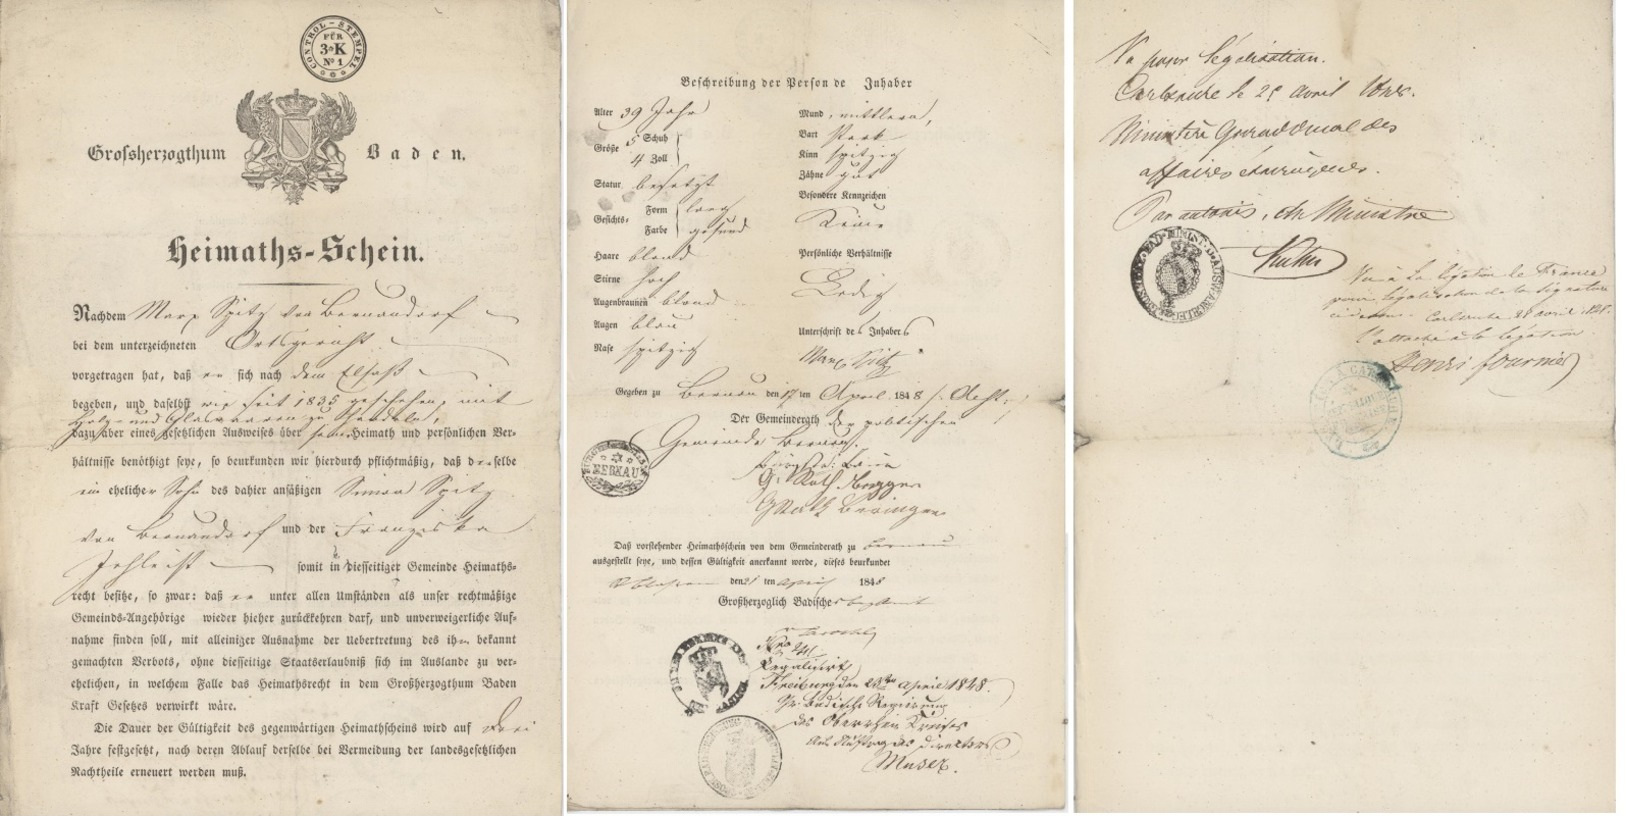 CONTROL-STEMPEL
FÜR
3 K
No 1
Grossherzogthum Baden.
Heimaths-Schein.
Nachdem Marx Spitz von Bernaudorf
bei dem unterzeichneten Ortsgericht
vorgetragen hat, daß er sich nach dem Elsaß
begeben, und daselbst wie seit 1835 geschehen, mit
Holz- und Glaswaaren zu handeln,
dazu aber eines gesetzlichen Ausweises über seine Heimath und persönlichen Ver-
hältnisse benöthigt seye, so beurkunden wir hierdurch pflichtmäßig, daß derselbe
ein ehelicher Sohn des dahier ansäßigen Simon Spitz
von Bernaudorf und der Franziska
somit in diesseitiger Gemeinde Heimaths-
recht besitze, so zwar: daß er unter allen Umständen als unser rechtmäßige
Gemeinds-Angehörige wieder hieher zurückkehren darf, und unverweigerliche Auf-
nahme finden soll, mit alleiniger Ausnahme der Uebertretung des ihm bekannt
gemachten Verbots, ohne diesseitige Staatserlaubniß sich im Auslande zu ver-
ehelichen, in welchem Falle das Heimathsrecht in dem Großherzogthum Baden
Kraft Gesetzes verwirkt wäre.
Die Dauer der Gültigkeit des gegenwärtigen Heimathscheins wird auf drei
Jahre festgesetzt, nach deren Ablauf derselbe bei Vermeidung der landesgesetzlichen
Nachtheile erneuert werden muß.
Beschreibung der Person de Inhaber
Alter 39 Jahr
Größe 5 Schuh
4 Zoll
Statur besetzt
Gesichts- Form lang
Farbe gesund
Haare blond
Stirne hoch
Augenbraunen blond
Augen blau
Nase spitzig
Mund mittlern,
Bart stark
Kinn spitzig
Zähne gut
Besondere Kennzeichen
Keine
Persönliche Verhältnisse
Ledig
Unterschrift des Inhabers
Marx Spitz
Gegeben zu Bernau den 17ten April 1848
Der Gemeinderath der politischen
Gemeinde Bernau.
BERNAU
Daß vorstehender Heimathsschein von dem Gemeinderath zu Bernau
ausgestellt seye, und dessen Gültigkeit anerkannt werde, dieses beurkundet
den 21 ten April 1848
Großherzoglich Badisches Bezksamt
Legalisirt
Freiburg den 23ten April 1848.
Gr. Badische Regierung
des Oberrhein Kreises
Aus Auftrag des Directors
Muser.
Vu pour légalisation.
Carlsruhe le 25 avril 1848.
Ministère Grandducal des
affaires étrangères.
Par autoris. du Ministre
Kuhn
Vu à la légation de France
pour légalisation de la signature
ci dessus. Carlsruhe 28 avril 1848.
l'attaché à la légation
Henri fournier